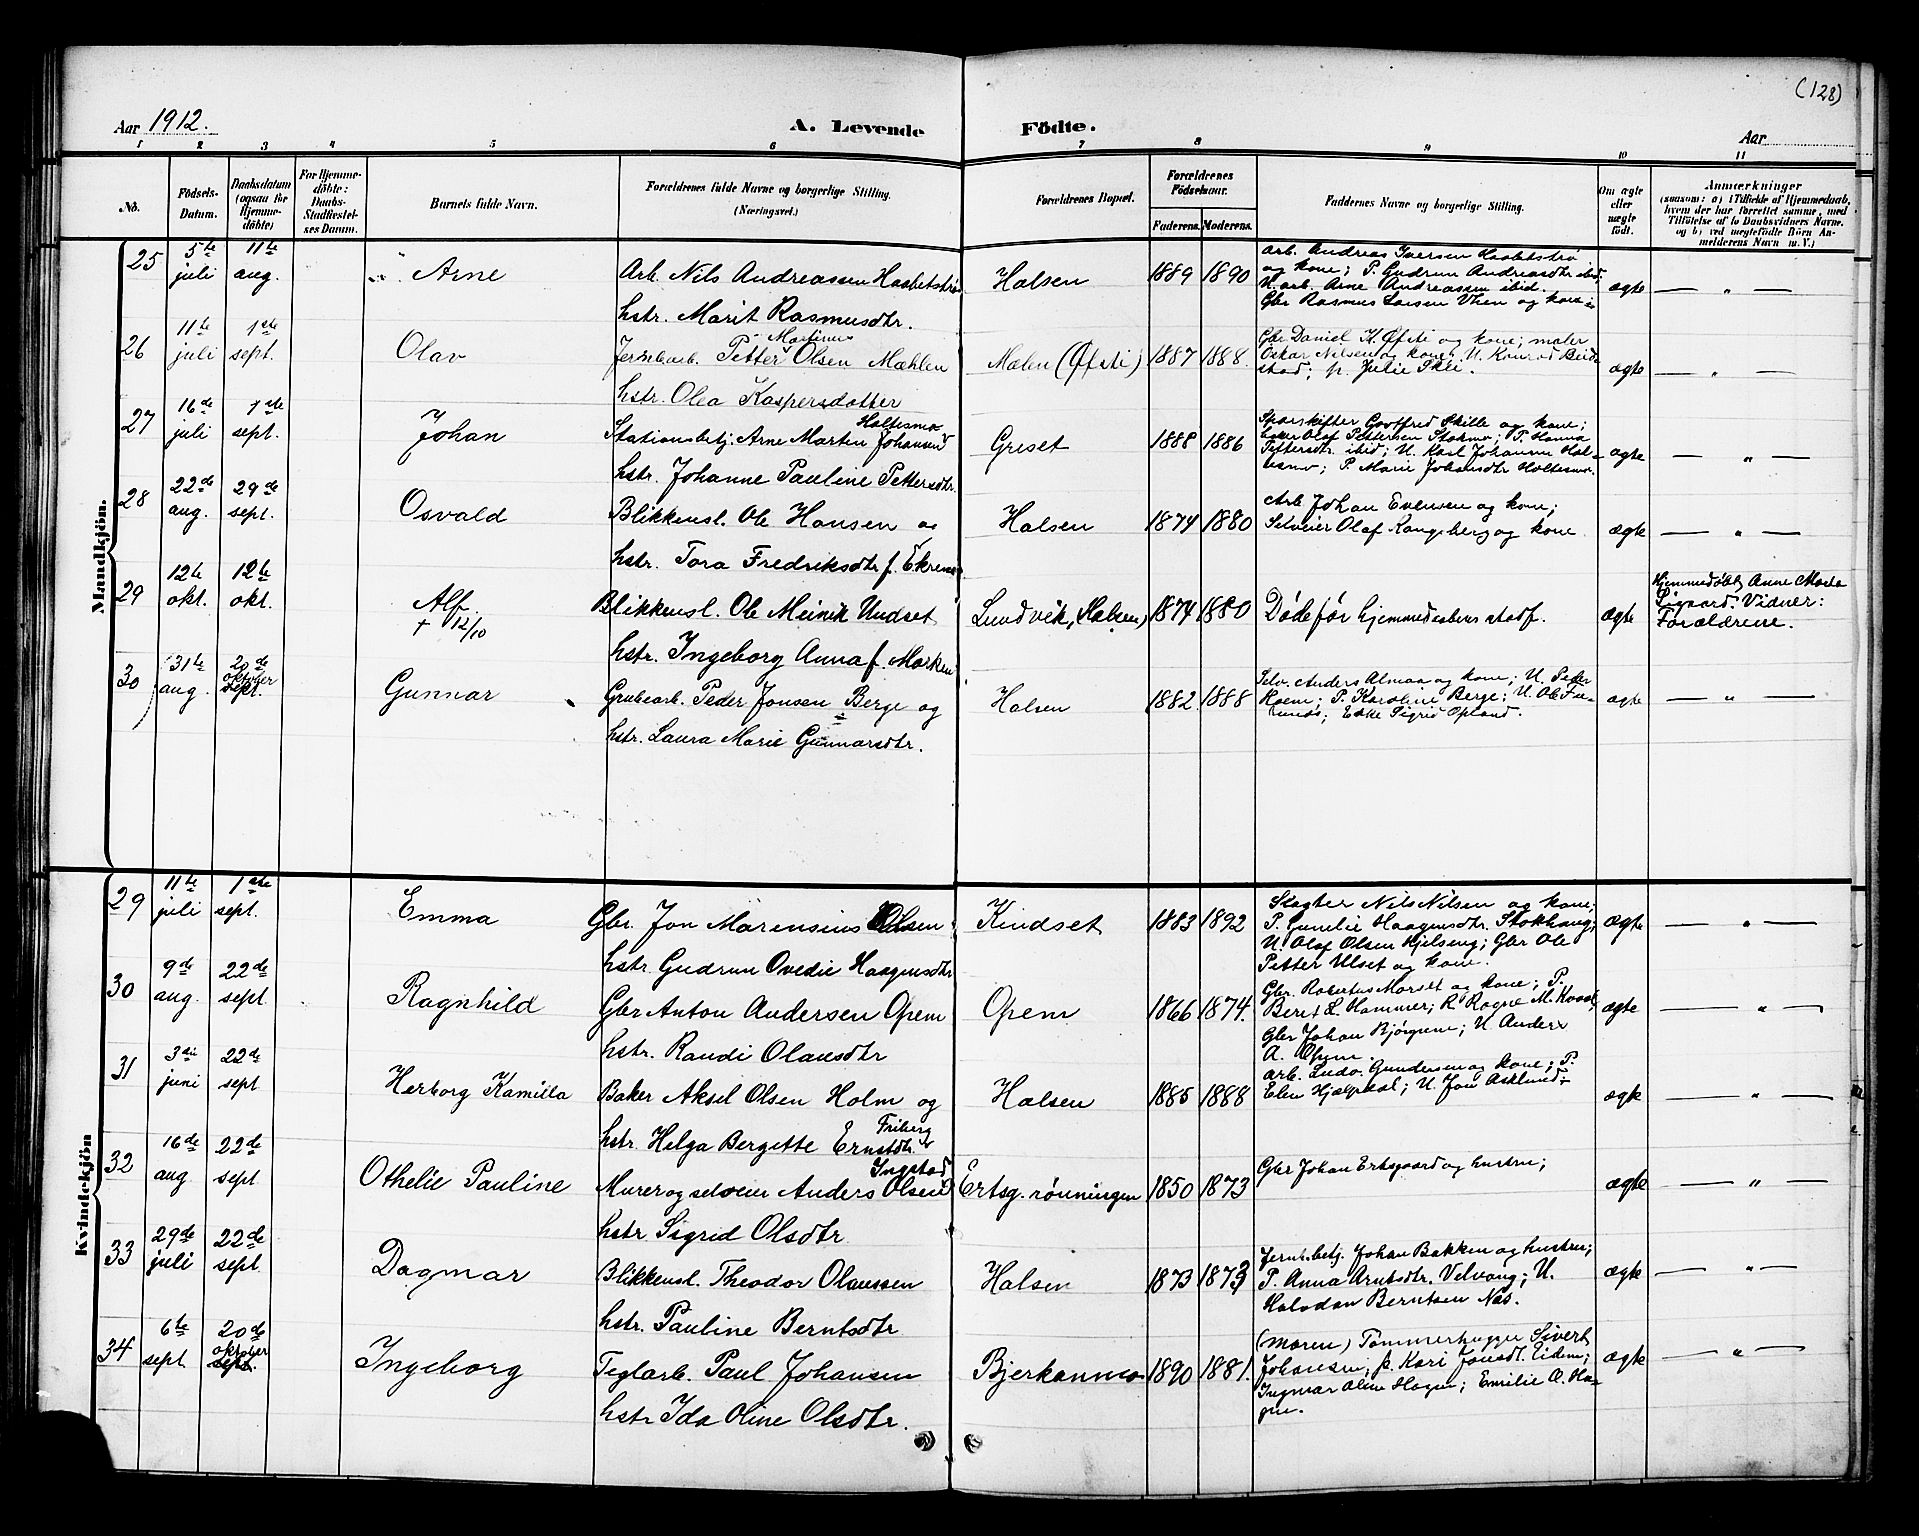 (128)
Aar 1912.
A. Levende Fødte.
Aar
1 2 3 4 5 6 7 8 9 10 11
No.
Födsels-Datum.
Daabsdatum (ogsaa for Hjemme-döbte)
For Hjemme-döbte: Daabs-Stadfæstel-ses Datum.
Barnets fulde Navn.
Forældrenes fulde Navne og borgerlige Stilling. (Næringsvei.)
Forældrenes Bopæl.
Forældrenes Födselsaar.
Faderens. Moderens.
Faddernes Navne og borgerlige Stilling.
Om ægte eller uægte född.
Anmærkninger
(saasom: a) i Tilfælde af Hjemmedaab, hvem der har forrettet samme, med Tilföielse af to Daabsvidners Navne, og b) ved uægtefödte Börn Anmelderens Navn m. V.)
Mandkjön.
25 5te juli 11te aug. Arne Arb. Nils Andreassen Haabetstrø Halsen 1889 1890 Arb. Andreas Iversen Haabetstrø
og kone; P. Gudrun Andreasdtr ibid;
U. arb. Arne Andreassen ibid.
Gbr Rasmus Larsen Vhen og kone ægte — " —
hstr. Marit Rasmusdtr.
26 11te juli 1ste sept. Olav Jernbarb. Petter Martinus Olsen Mæhlen Mælen (Øfsti) 1887 1888. Gbr Daniel K. Øfsti og kone; maler
Oskar Nilsen og kone; U. Konrad Beid-
stad; p. Julie Skei. ægte — " —
hstr. Olea Kaspersdatter
27 16de juli 1ste sept. Johan Stationsbetj. Arne Martin Johansen Holtesmo Greset 1888 1886 Sporskifter Gotfred Skille og kone;
Olaf Pettersen Stokmo; P. Hanna
Pettersdtr. ibid; U. Karl Johansen Hol-
tesmo; P. Marie Johansdtr Holtesmo. ægte — " —
hstr. Johanne Pauline Pettersdtr.
28 22de aug. 29de sept. Osvald Blikkensl. Ole Hansen og Halsen 1874 1880 Arb. Johan Evensen og kone;
Selveier Olaf Kongsberg og kone ægte — " —
hstr. Tora Fredriksdtr f. Ekren
29 12te okt. 12te okt. Alf. † 12/10 Blikkensl. Ole Meinik Undset Lundvik, (Halsen) 1874 1880 Døde før hjemmedaabens stadf. ægte Hjemmedøbt Anne Marta
Vidner:
Forældrene.
hstr. Ingeborg Anna f. Marken
30 31te aug. 20de oktober sept. Gunnar Grubearb. Peder Jonsen Berge og Halsen 1882 1888 Selv. Anders Almaa og kone; U. Peder
Roem; P. Karoline Berge; U. Ole
Enke Sigrid Opland. ægte — " —
hstr. Laura Marie Gunnarsdtr.
Kvindekjön
29 11te juli 1ste sept. Emma Gbr. Jon Marensius Olsen Kindset 1883 1892 Slagter Nils Nilsen og kone;
P. Gunelie Haagensdtr. Stokhaug;
U. Olaf Olsen Hjelseng; Gbr Ole
Petter Ulset og kone. ægte — " —
hstr Gudrun Ovedie Haagensdtr
30 9de aug. 22de sept. Ragnhild Gbr Anton Andersen Opem Opem 1866 1874. Gbr. Robertus Morset og kone; P.
Beret L. Hammer; P. Ragne M. Kvaal;
Gbr Johan Bjørgum; U. Anders
A. Opem. ægte — " —
hstr. Randi Olausdtr
31 3die juni 22de sept Herborg Kamilla Baker Aksel Olsen Holm og Halsen 1885 1888 Arb. Ludv. Gundersen og kone; P.
Elen Hjælpdal; U. Jon Asklund; ægte — " —
hstr. Helga Bergitte Ernstdtr. Friberg
32 16de aug 22de sept Othelie Pauline Murer og selveier Anders Olsen Ingstad Ertsg. rønningen 1850 1873 Gbr Johan Ertsgaard og hustru; ægte — " —
hstr. Sigrid Olsdtr.
33 29de juli 22de sept. Dagmar Blikkensl. Theodor Olaussen Halsen 1873 1873 Jernb.betj. Johan Bakken og hustru;
P. Anna Arntsdtr. Velvang; U.
Halvdan Berntsen Næs. ægte — " —
hstr. Pauline Berntsdtr
34 6te sept 20de oktober sept. Ingeborg Teglarb. Paul Johansen Bjerkanmo 1890 1881. (moren) Tømmerhugger Sivert
Johansen; p. Kari Jonsdt. Eidem;
Ingmar Aline Hagen; Emilie A. Ha-
gen. ægte — " —
hstr Ida Oline Olsdtr.